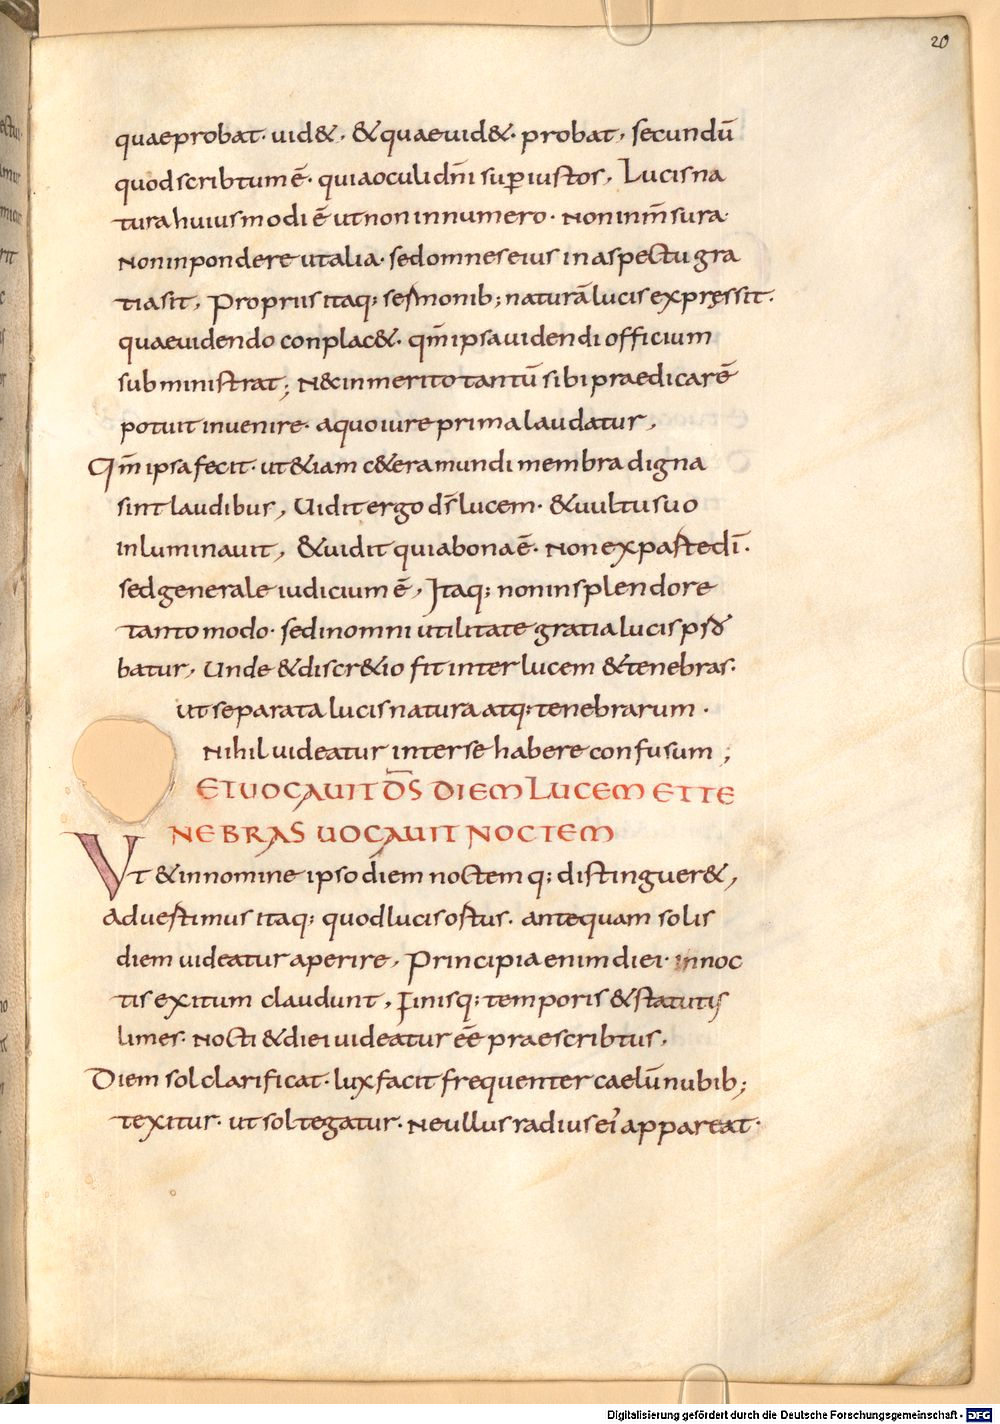 20
quae probat· uid&· &quae uid&· probat, secundū
quod scribtum ē· quia oculi dn̄i sup̄ iustos, Lucis na
tura huiusmodi ē ut non in numero· Non in m̄sura·
Non in pondere ut alia· sed omnes eius in aspectu gra
tia sit, Propriis itaq; sermonib; naturā lucis expręssit·
quae uidendo conplac&· qm̄ ipsa uidendi officium
subministrat; N& inmerito tantū sibi praedicarē
potuit inuenire· a quo iure prima laudatur,
Qm̄ ipsa fecit· ut &iam c&era mundi membra digna
sint laudibus, Uidit ergo ds̄ lucem· & uultu suo
inluminauit, & uidit quia bona ē· Non ex paste dī·
sed generale iudicium ē, Itaq; non in splendore
tantomodo· sed in omni utilitate gratia lucis
batur, Unde & discr&io fit inter lucem & tenebras·
ut separata lucis natura atq; tenebrarum·
Nihil uideatur inter se habere confusum;
ET UOCAUIT DS̄ DIEM LUCEM ET TE
NEBRAS UOCAUIT NOCTEM
Vt & in nomine ipso diem noctemq; distinguer&,
Aduestimus itaq; quod lucis ostus· antequam solis
diem uideatur aperire, Principia enim diei· in noc
tis exitum claudunt, Finisq; temporis & statutis
limes· Nocti & diei uideatur eē praescribtus,
Diem sol clarificat· lux facit frequenter caelū nubib;
texitur· ut sol tegatur· Ne ullus radius eī appareat·
Digitalisierung gefördert durch die Deutsche Forschungsgemeinschaft - DFG